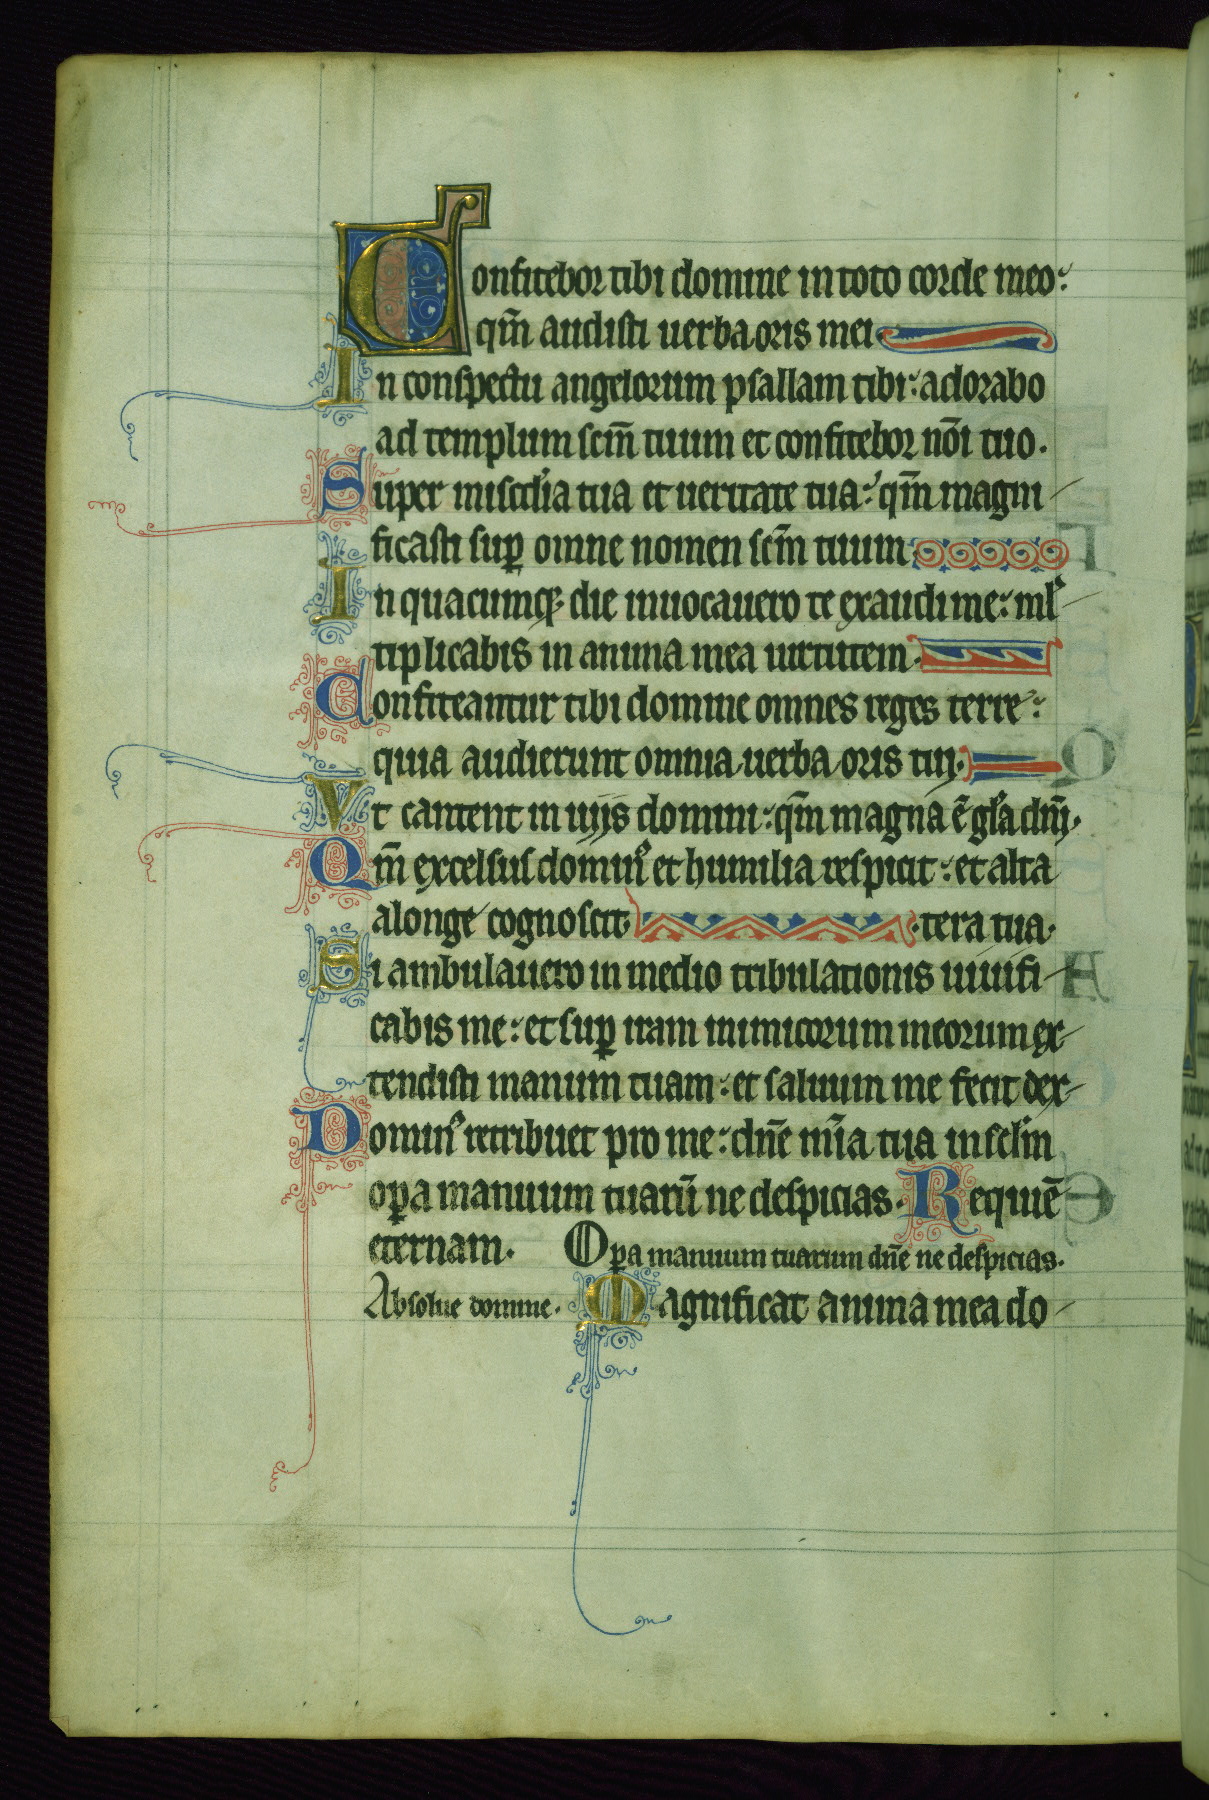 Confitebor tibi domine in toto corde meo:
qm̄ audisti uerba oris mei
In conspectu angelorum psallam tibi: adorabo
ad templum scm̄ tuum et confitebor nōi tuo.
Super miscd'ia tua et ueritate tua: qm̄ magni
ficasti suꝑ omne nomen scm̄ tuum.
In quacumqꝫ die inuocauero te exaudi me: ml'
tiplicabis in anima mea uirtutem.
Confiteantur tibi domine omnes reges terre:
quia audierunt omnia uerba oris tui.
Vt cantent in uijs domini: qm̄ magna ē gl'a dn̄i.
Qm̄ excelsus dominꝰ et humilia respicit: et alta
a longe cognoscit. tera tua.
Si ambulauero in medio tribulationis uiuifi
cabis me: et suꝑ iram inimicorum meorum ex
tendisti manum tuam: et saluum me fecit dex
Dominꝰ retribuet pro me: dn̄e m̄ia tua in sclm̄
oꝑa manuum tuarū ne despicias. Requiē
eternam. Oꝑa manuum tuarum dn̄e ne despicias.
Absolue domine. Magnificat anima mea do